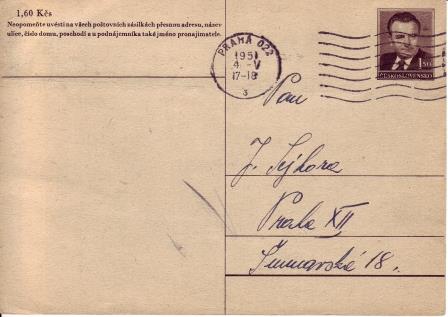 1,60 Kčs
Neopomeňte uvésti na všech poštovních zásilkách přesnou adresu, název
ulice, číslo domu, poschodí a u podnájemníka také jméno pronajimatele.
PRAHA 022
1951
4 -V
17-18
3
ČESKOSLOVENSKO
1,50
Pan
J. Sejkora
Praha XII
18.